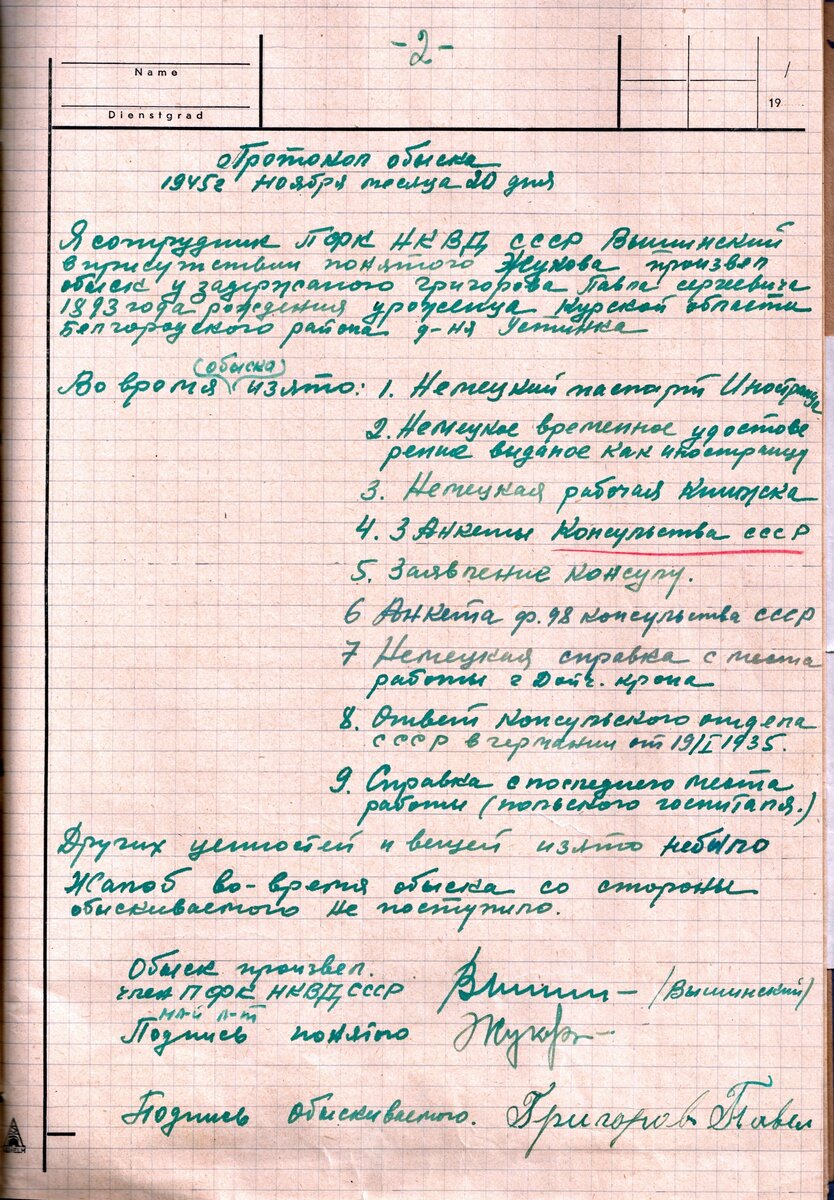 -2-
Name
Dienstgrad
/
19
Протокол обыска
1945г ноября месяца 20 дня
Я сотрудник ПФК НКВД СССР Вышинский
в присутствии понятого Жукова произвел
обыск у задержаного Григорова Павла сергеевича
1893 года рождения уроженца Курской области
Белгородского района д-ня Устинка
(обыска)
Во время изято: 1. Немецкий паспорт Иностранца
2. Немецкое временное удостове
рение выданое как иностранцу
3. Немецкая рабочая книжска
4. 3 Анкеты Консульства СССР
5. Заявление консулу.
6 Анкета ф.98 консульства СССР
7 Немецкая справка с места
работы г Дойч. крона
8. Ответ консульского отдела
СССР в германии от 19/I 1935.
9. Справка с последнего места
работы (польского госпиталя.)
Других ценностей и вещей изято небыло
Жалоб во-время обыска со стороны
обыскиваемого не поступило.
Обыск произвел.
член ПФК НКВД СССР Вышин- (Вышинский)
мл-й л-т
Подпись понятого Жуков-
Подпись обыскиваемого. Григоров Павел